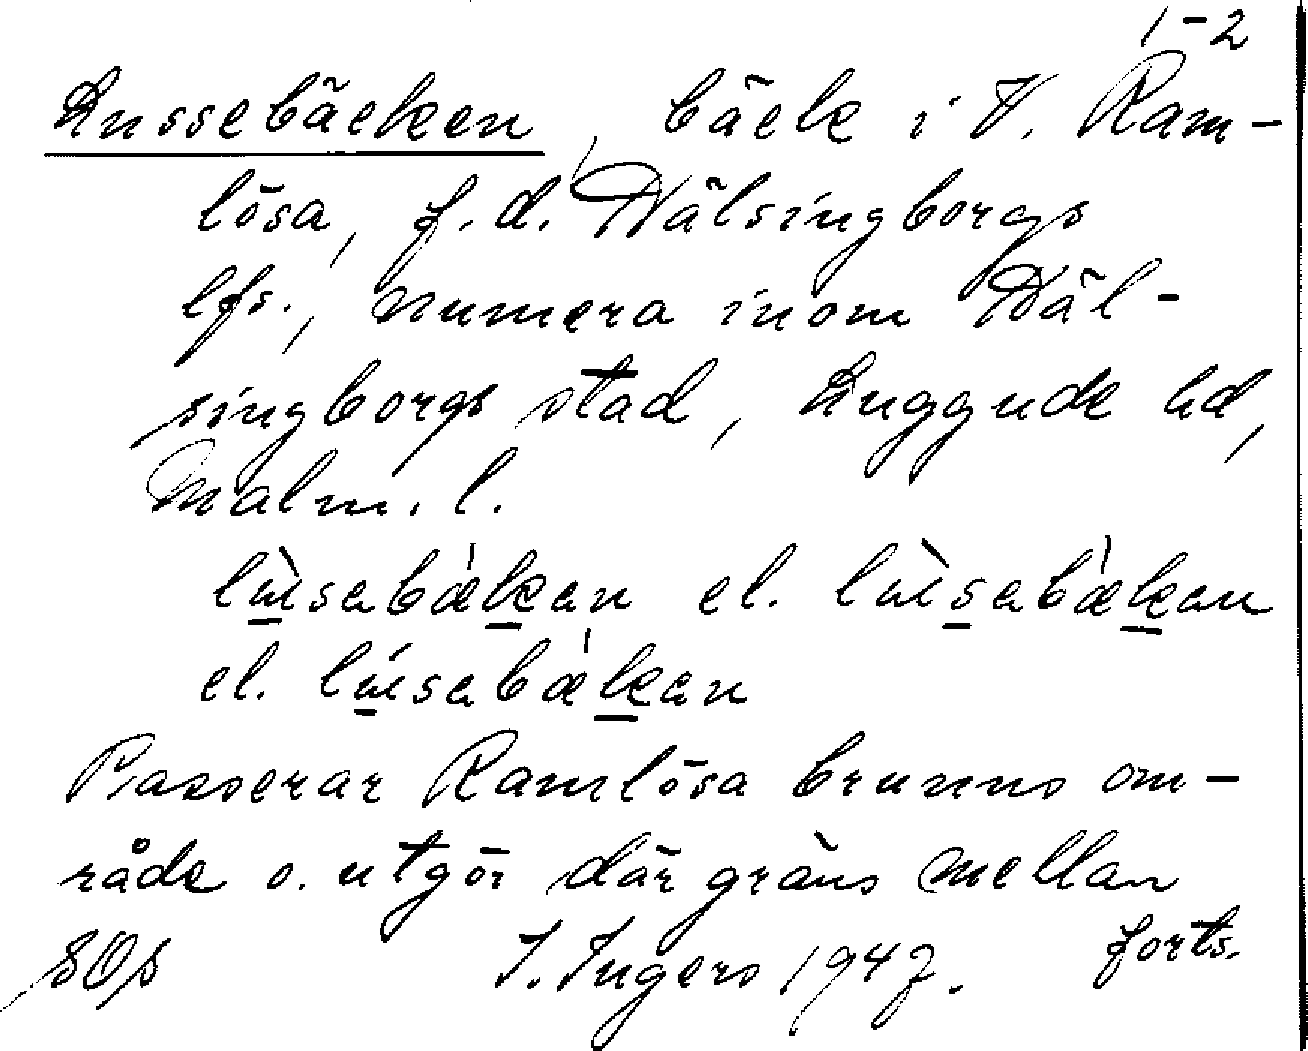 1-2
Lussebäcken, bäck i V. Ram-
lösa, f.d. Hälsingborgs
lfs., numera inom Häl-
singborgs stad, Luggude hd,
Malm. l.
el.
el.
Passerar Ramlösa brunns om-
råde o. utgör där gräns mellan
SOS I. Ingers 1947. forts.